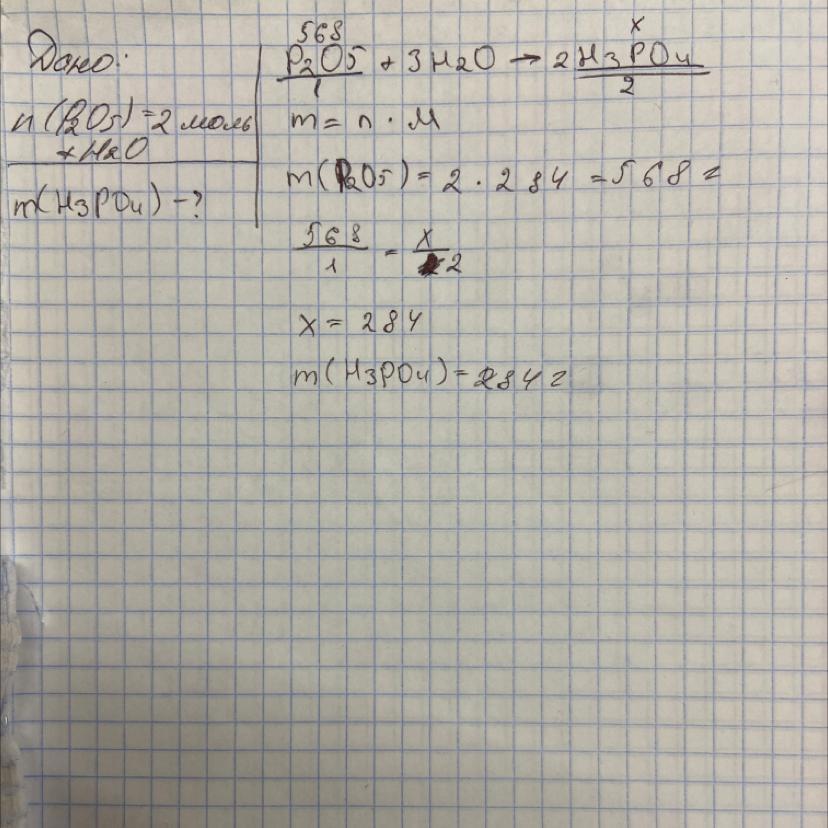 Дано:
n(P2O5)=2 моль
+H2O
m(H3PO4)-?
568 x
P2O5 + 3H2O → 2H3PO4
1 2
m = n · M
m(P2O5) = 2 · 284 = 568 г
568/1 = x/2
x = 284
m(H3PO4) = 284 г